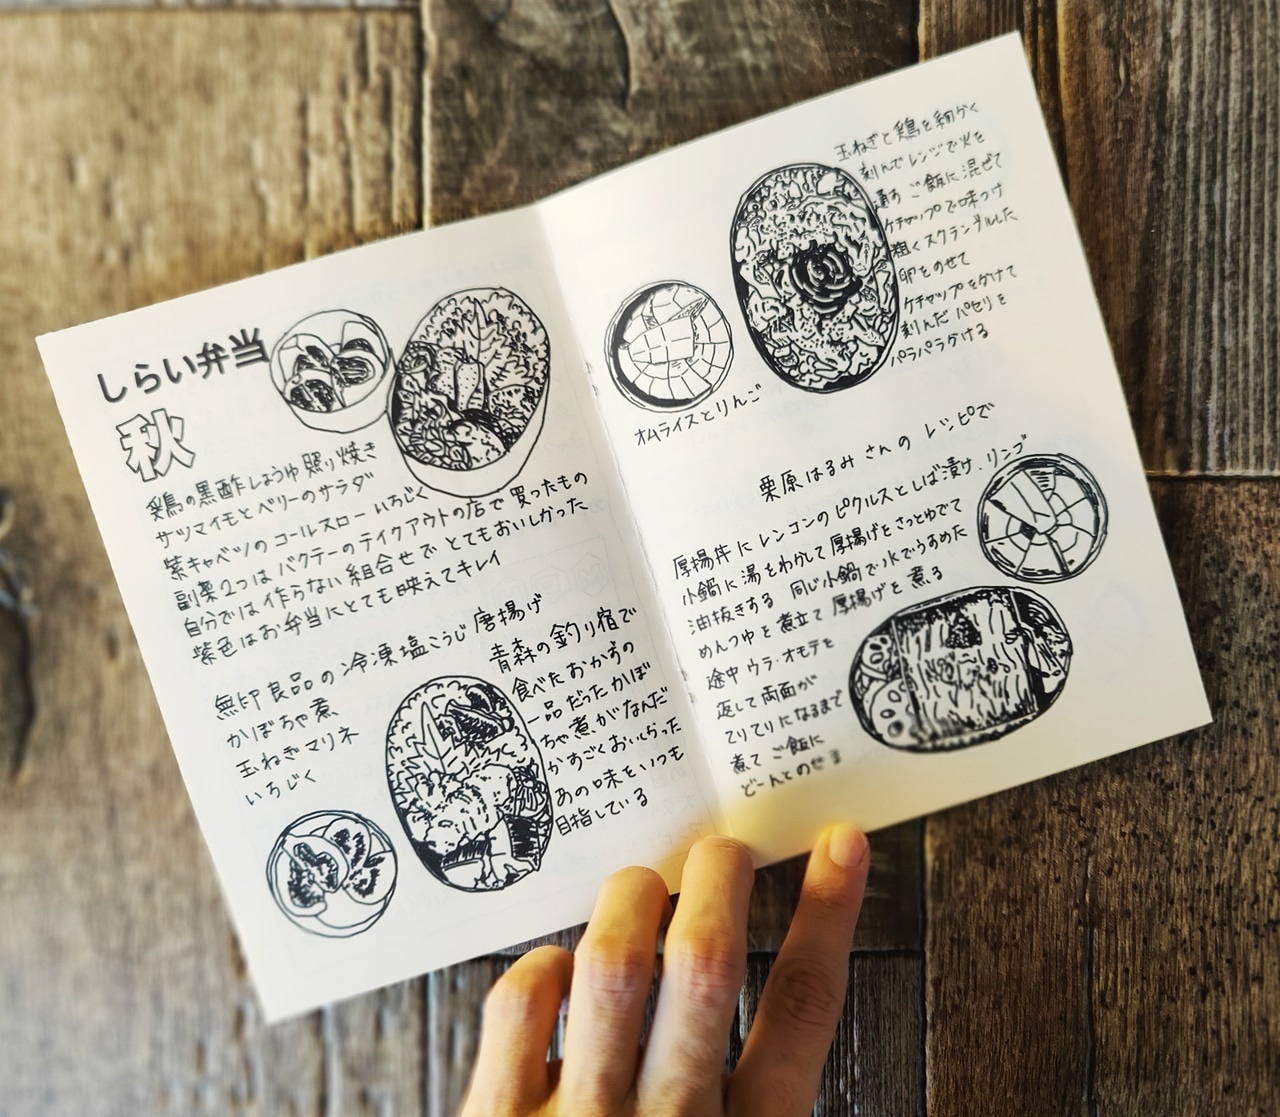 しらい弁当
秋
鶏の黒酢しょうゆ照り焼き
サツマイモとベリーのサラダ
紫キャベツのコールスロー いちじく
副菜2つはバクテーのテイクアウトの店で買ったもの
自分では作らない組合せでとてもおいしかった
紫色はお弁当にとても映えてキレイ
無印良品の冷凍塩こうじ唐揚げ
かぼちゃ煮
玉ねぎマリネ
いちじく
青森の釣り宿で
食べたおかずの
一品だったかぼ
ちゃ煮がなんだ
かすごくおいしかった
あの味をいつも
目指している
玉ねぎと鶏を細かく
刻んでレンジで火を
通す ご飯に混ぜて
ケチャップで味つけ
粗くスクランブルした
卵をのせて
ケチャップをかけて
刻んだパセリを
パラパラかける
オムライスとりんご
栗原はるみさんのレシピで
厚揚丼にレンコンのピクルスとしば漬け、リンゴ
小鍋に湯をわかして厚揚げをさっとゆでて
油抜きする 同じ小鍋で水でうすめた
めんつゆを煮立て厚揚げを煮る
途中ウラ・オモテを
返して両面が
てりてりになるまで
煮て ご飯に
どーんとのせる